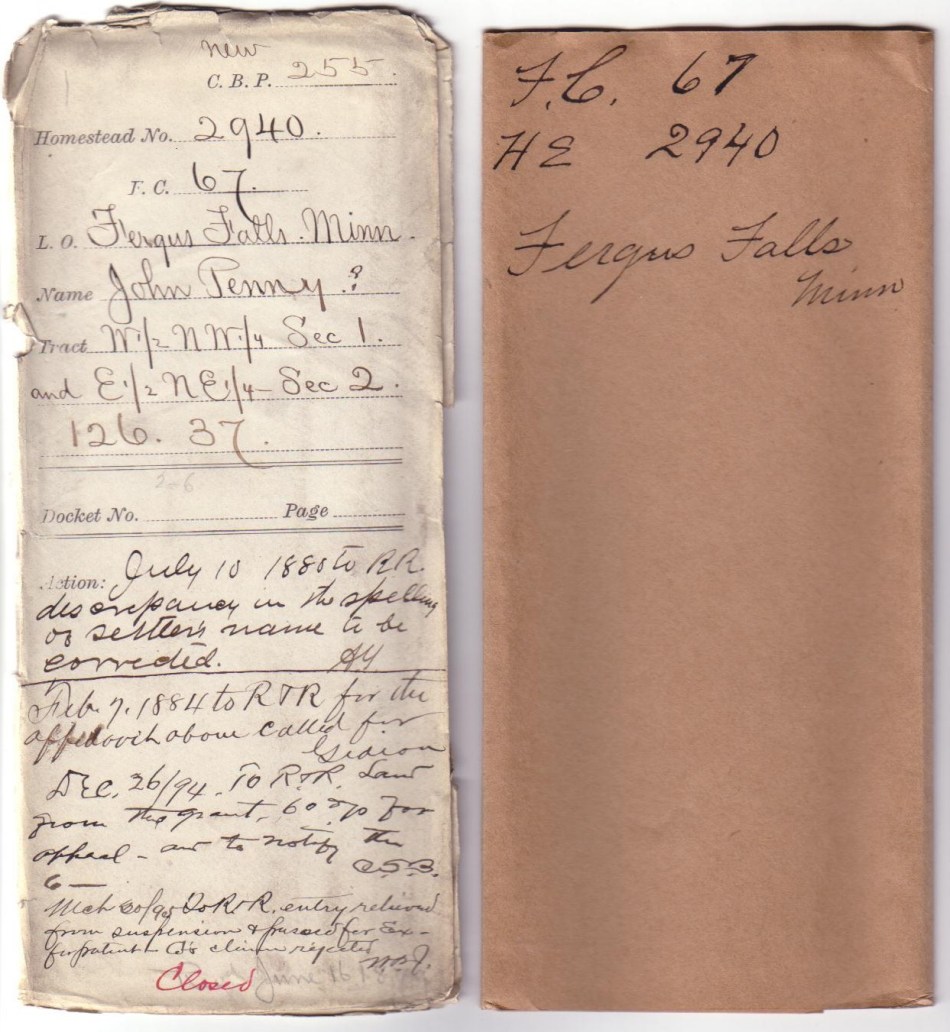 new
C. B. P. 255.
Homestead No. 2940.
F. C. 67.
L. O. Fergus Falls. Minn.
Name John Penny ?
Tract W 1/2 N W 1/4 Sec 1.
and E 1/2 N E 1/4 - Sec 2.
126. 37.
2-6
Docket No. Page
Action: July 10 1880 to R.R.
discrepancy in the spelling
of settler's name to be
corrected.
Feb. 7. 1884 to R & R for the
affidavit above called for
Dec. 26/94. To R. & R. Land
from the grant, 60 for
appeal - and to notify the
Co
Mch 20/95 To R. & R. entry relieved
from suspension & passed for Ex-
for patent Co's claim rejected
Closed June 16
F.C. 67
H E 2940
Fergus Falls
Minn